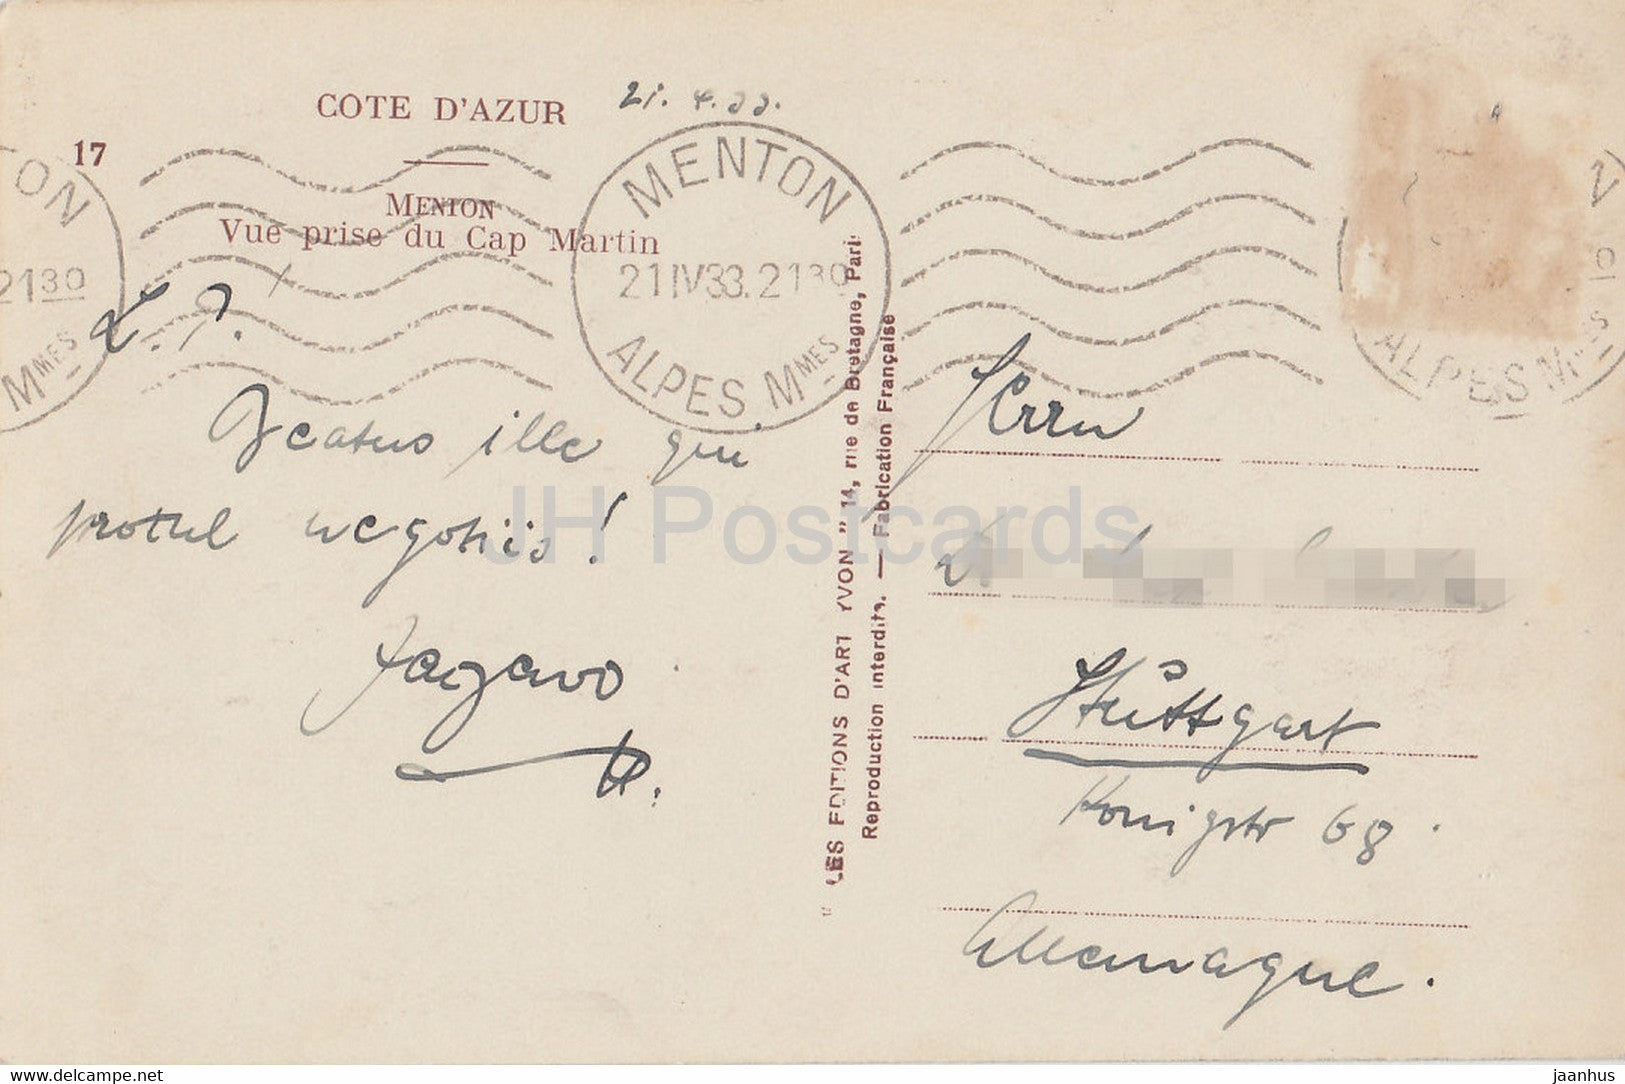 COTE D'AZUR
21. 4. 33.
17
MENTON
Vue prise du Cap Martin
MENTON
21 IV 33. 2130
ALPES MMES
ON
2130
MMES
N
ALPES MMES
L. P.
Beatus ille qui
protul negotiis!
Herrn
Stuttgart
Königstr 68.
Allemagne.
LES EDITIONS D'ART YVON" 14, rue de Bretagne, Paris
Reproduction interdite. — Fabrication Française
JH Postcards
www.delcampe.net
jaanhus